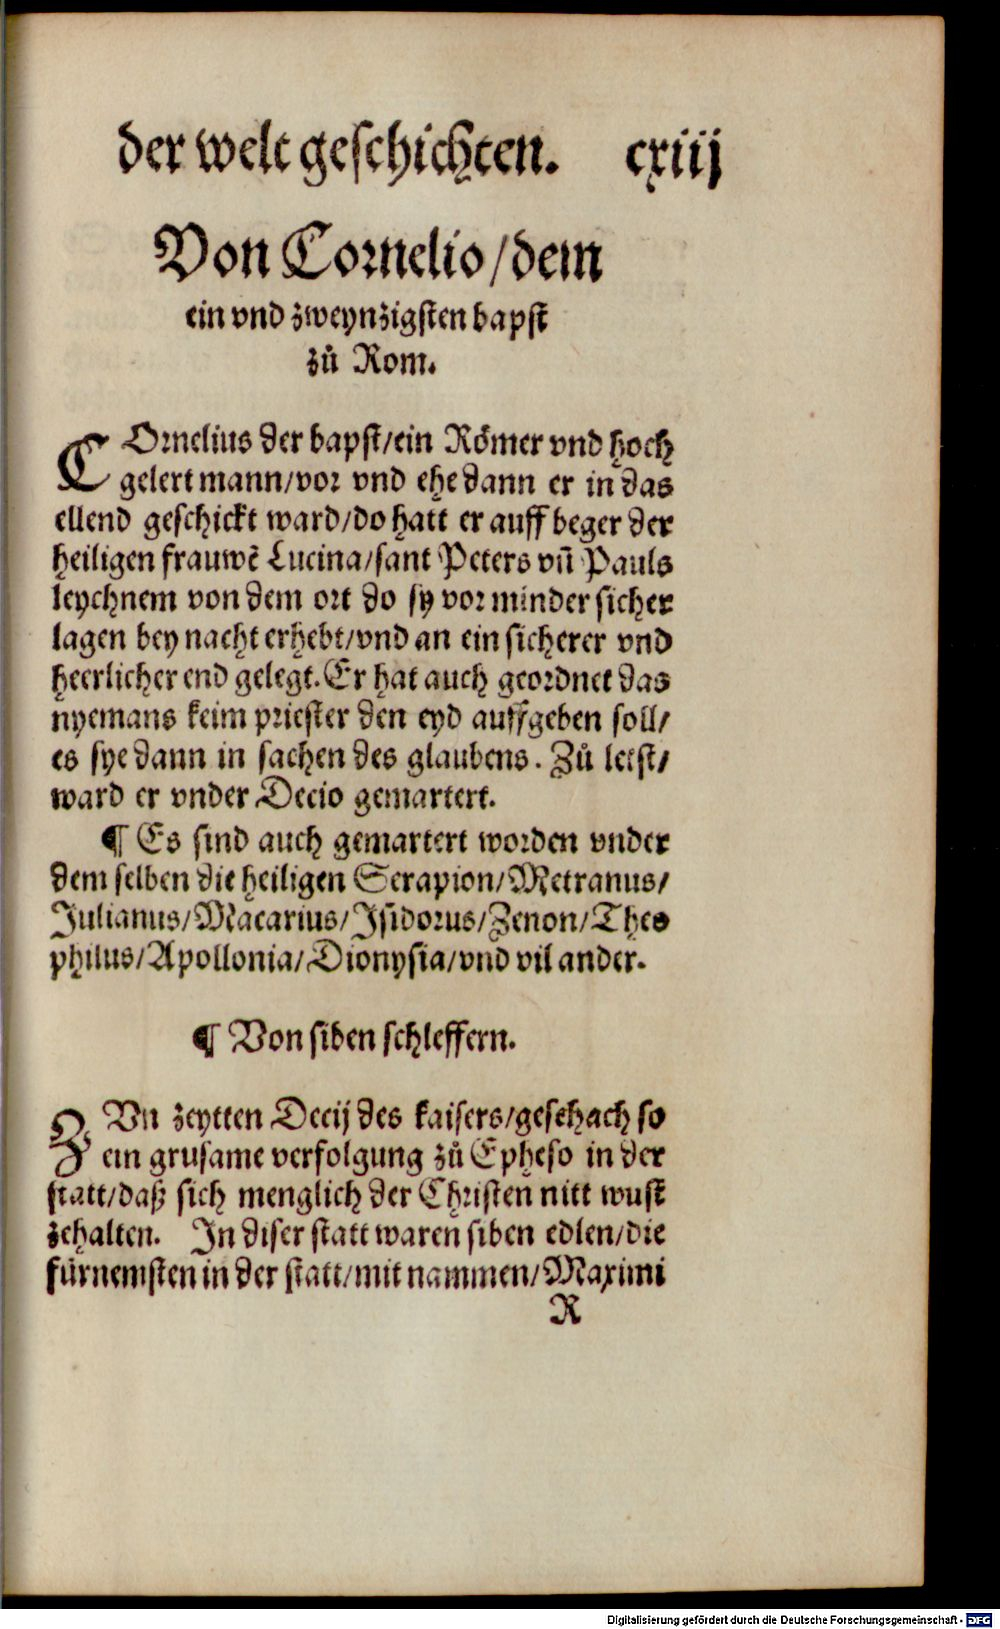 der welt geschichten. cxiij
Von Cornelio/dem
ein vnd zweynzigsten bapst
zů Rom.
COrnelius der bapst/ein Römer vnd hoch
gelert mann/vor vnd ehe dann er in das
ellend geschickt ward/do hatt er auff beger der
heiligen frauwē Lucina/sant Peters vn̄ Pauls
leychnem von dem ort do sy vor minder sicher
lagen bey nacht erhebt/vnd an ein sicherer vnd
heerlicher end gelegt. Er hat auch geordnet das
nyemans keim priester den eyd auffgeben soll/
es sye dann in sachen des glaubens. Zů letst/
ward er vnder Decio gemartert.
¶ Es sind auch gemartert worden vnder
dem selben die heiligen Serapion/Metranus/
Julianus/Macarius/Jsidorus/Zenon/Theo
philus/Apollonia/Dionysia/vnd vil ander.
¶ Von siben schleffern.
ZVn zeytten Decij des kaisers/geschach so
ein grusame verfolgung zů Epheso in der
statt/daß sich menglich der Christen nitt wust
zehalten. In diser statt waren siben edlen/die
fürnemsten in der statt/mit nammen/Maximi
R
Digitalisierung gefördert durch die Deutsche Forschungsgemeinschaft - DFG